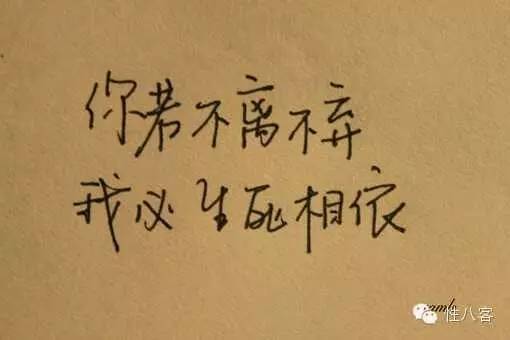 你若不离不弃
我必生死相依
性八客